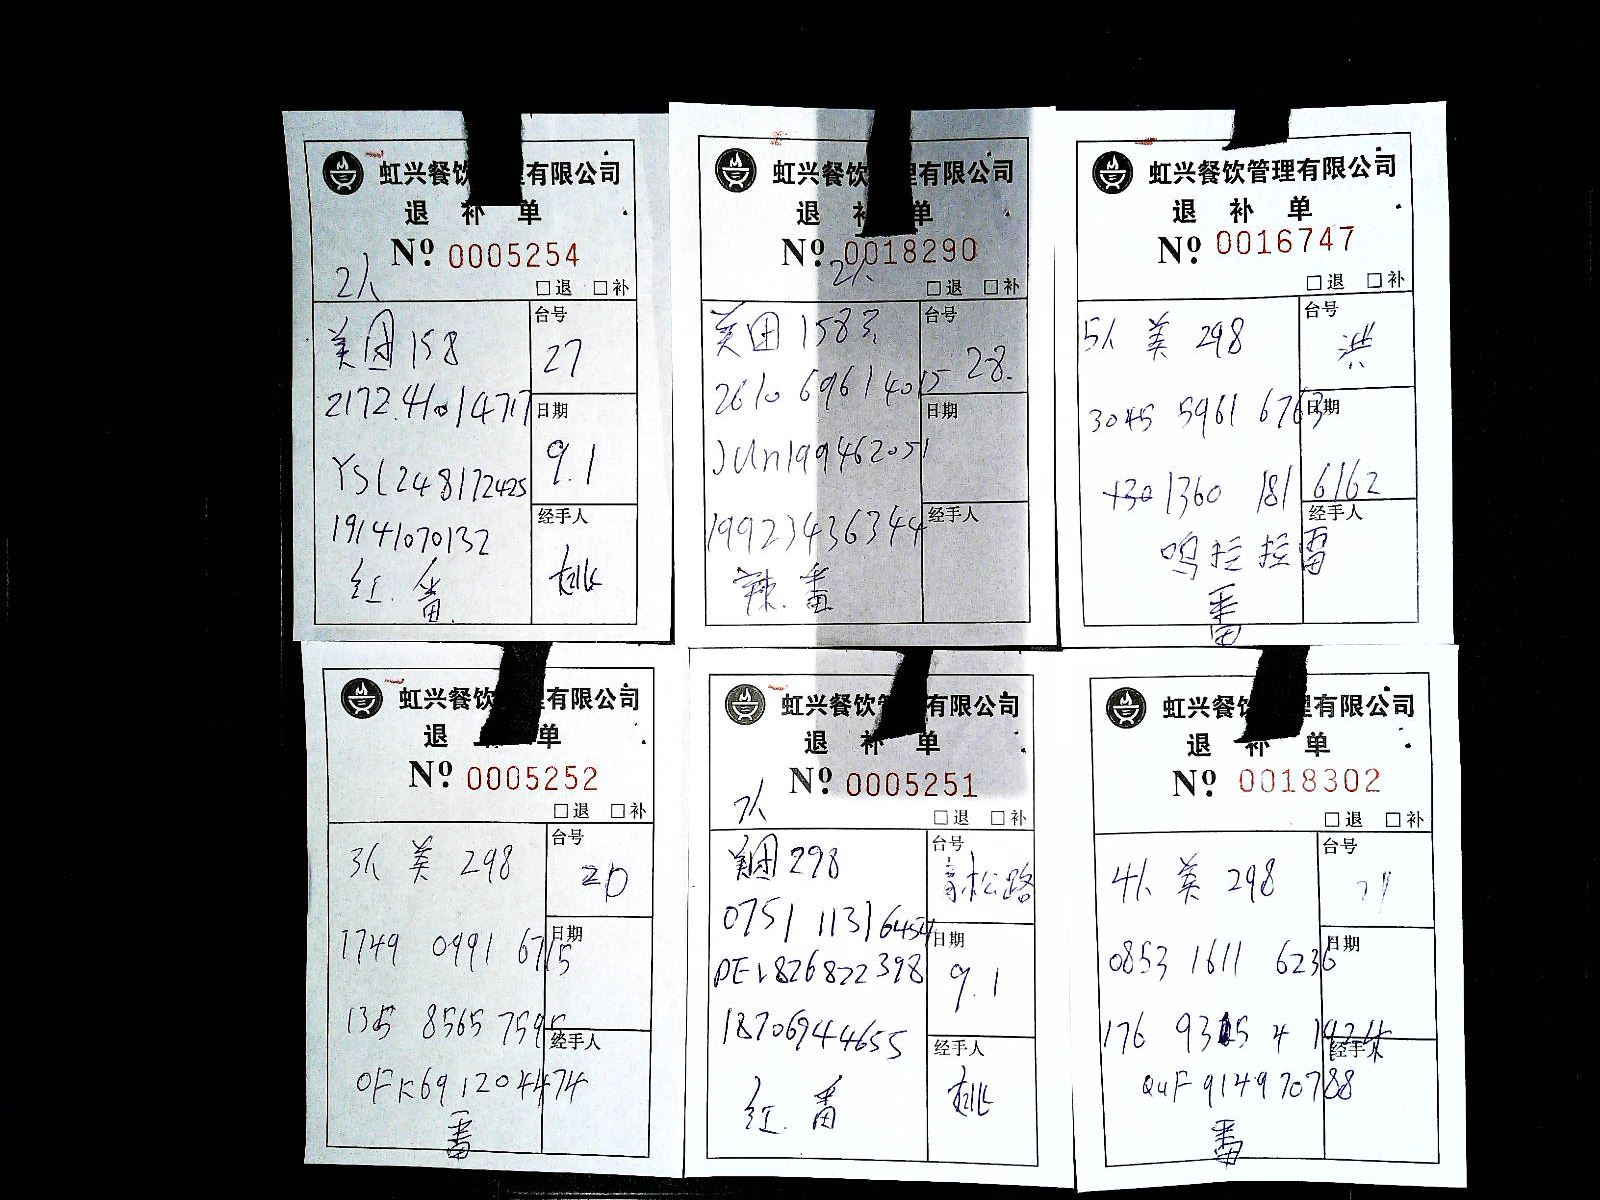 虹兴餐饮 理有限公司
退 补 单
Nº 0005254
2人
□退 □补
美团 158
台号
27
2172.41014717
日期
9.1
YSL248172425
19141070132
经手人
桃
红. 番
虹兴餐饮 理有限公司
退 单
Nº 0018290
2人
□退 □补
美团 158
台号
28.
2610 6961 4015
日期
JUn199462051
19923436344
经手人
辣. 番
虹兴餐饮管理有限公司
退 补 单
Nº 0016747
□退 □补
5人 美 298
台号
洪
3045 5961 6763
日期
1360 181 6162
经手人
鸣拦拦雷
番
虹兴餐饮 理有限公司
退 单
Nº 0005252
□退 □补
3人 美 298
台号
20
1749 0991 6715
日期
135 8565 7595
经手人
OFK691204474
番
虹兴餐饮 有限公司
退 补 单
Nº 0005251
□退 □补
美团 298
台号
高松路
0751 1131 6454
日期
9.1
DEL826822398
18706944655
经手人
桃
红. 番
虹兴餐饮 理有限公司
退 补 单
Nº 0018302
□退 □补
4人 美 298
台号
0853 1611 6236
日期
176 9315 4
经手人
QuF914970788
番